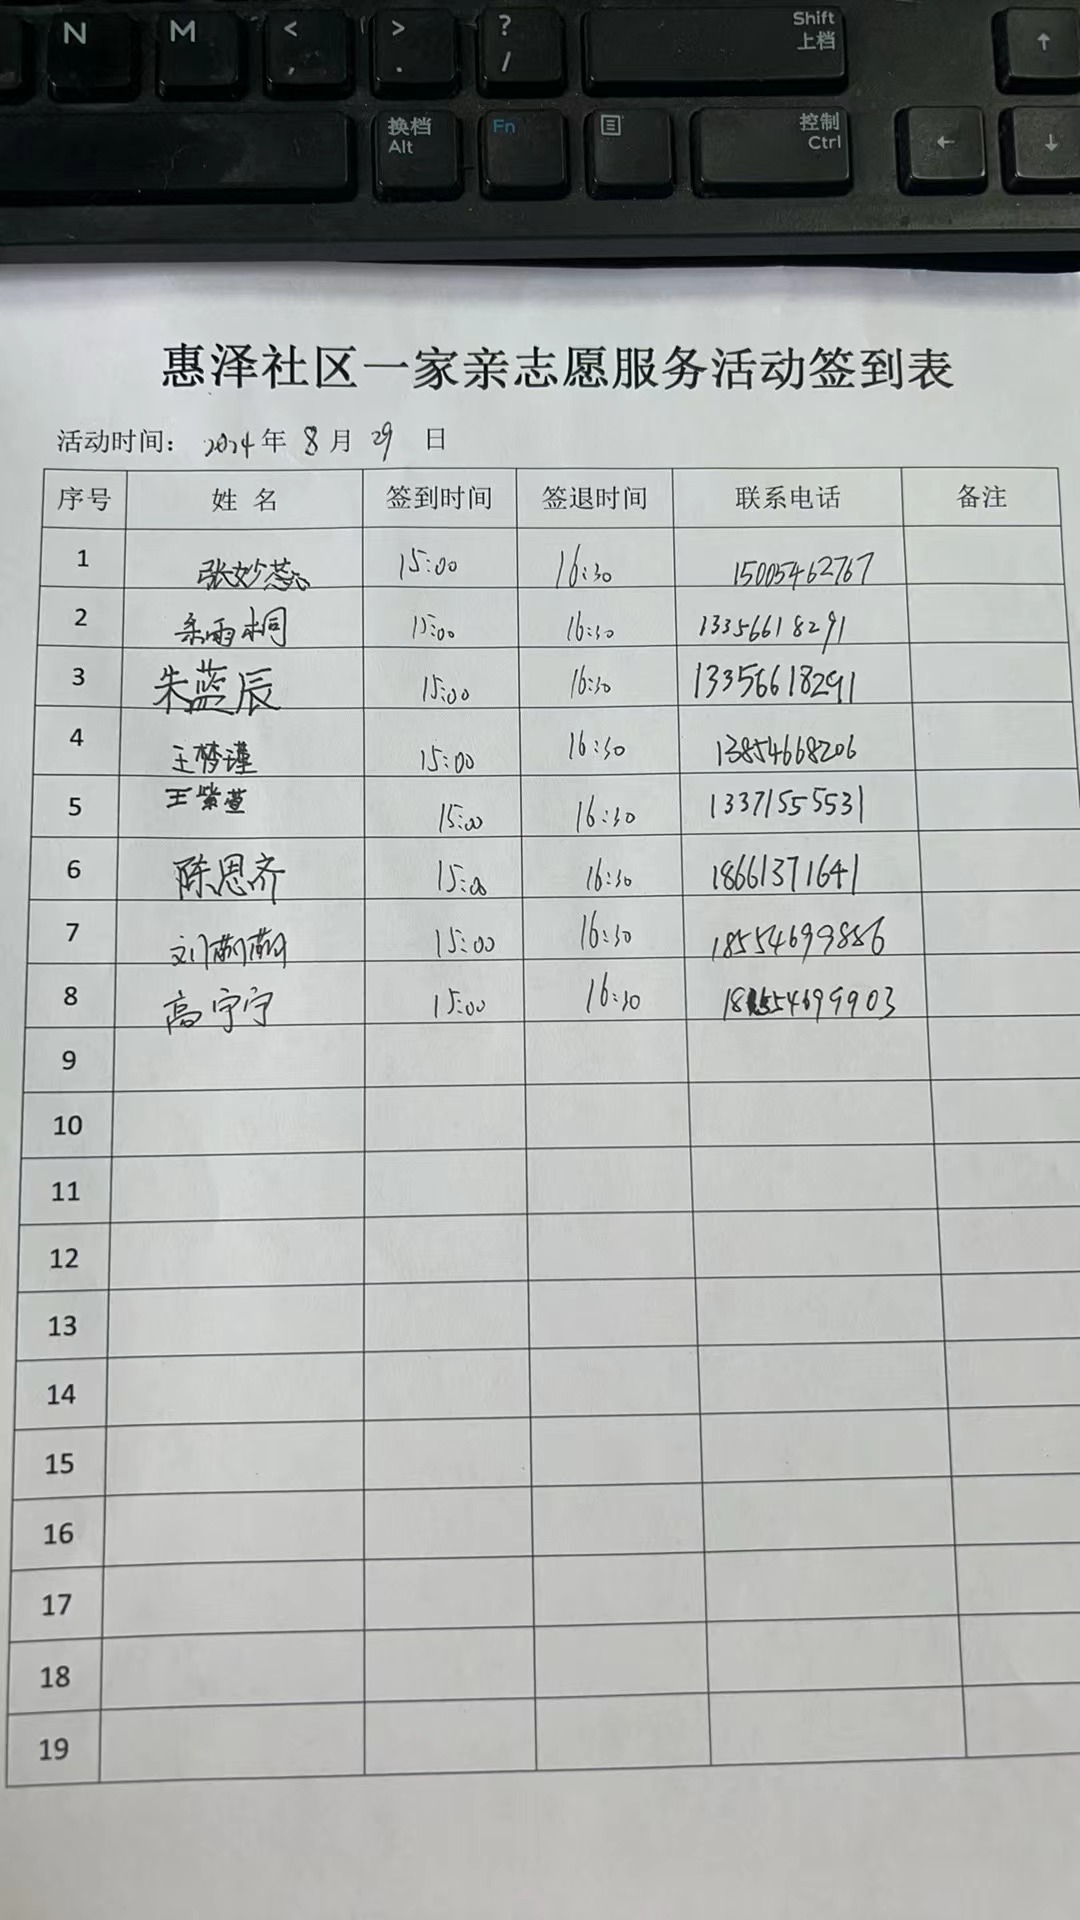 N M < , > . ? / Shift 上档 ↑
换档 Alt Fn 控制 Ctrl ← ↓
惠泽社区一家亲志愿服务活动签到表
活动时间: 2024年 8月 29 日
序号 姓 名 签到时间 签退时间 联系电话 备注
1 张妙蕊 15:00 16:30 15005462767
2 雨桐 15:00 16:30 13356618291
3 朱蓝辰 15:00 16:30 13356618291
4 王梦瑾 15:00 16:30 13854668206
5 王紫萱 15:00 16:30 13371555531
6 陈思齐 15:00 16:30 18661371641
7 刘萌萌 15:00 16:30 18554699856
8 高宇宁 15:00 16:30 18554699903
9
10
11
12
13
14
15
16
17
18
19